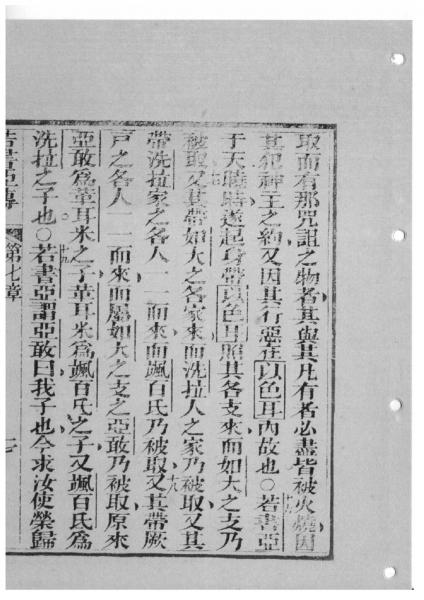 取而有那咒詛之物者其與其凡有者必盡皆被火燒因
其犯神主之約又因其行惡在以色耳內故也○若書亞
于天曉時遂起身帶以色耳照其各支來而如大之支乃
被取又其帶如大之各家來而洗拉人之家乃被取又其
帶洗拉家之各人一一而來而颯百氏乃被取又其帶厥
戸之各人一一而來而屬如大之支之亞敢乃被取原來
亞敢為葷耳米之子葷耳米為颯百氏之子又颯百氏為
洗拉之子也○若書亞謂亞敢曰我子也今求汝使榮歸
若書亞傳 第七章